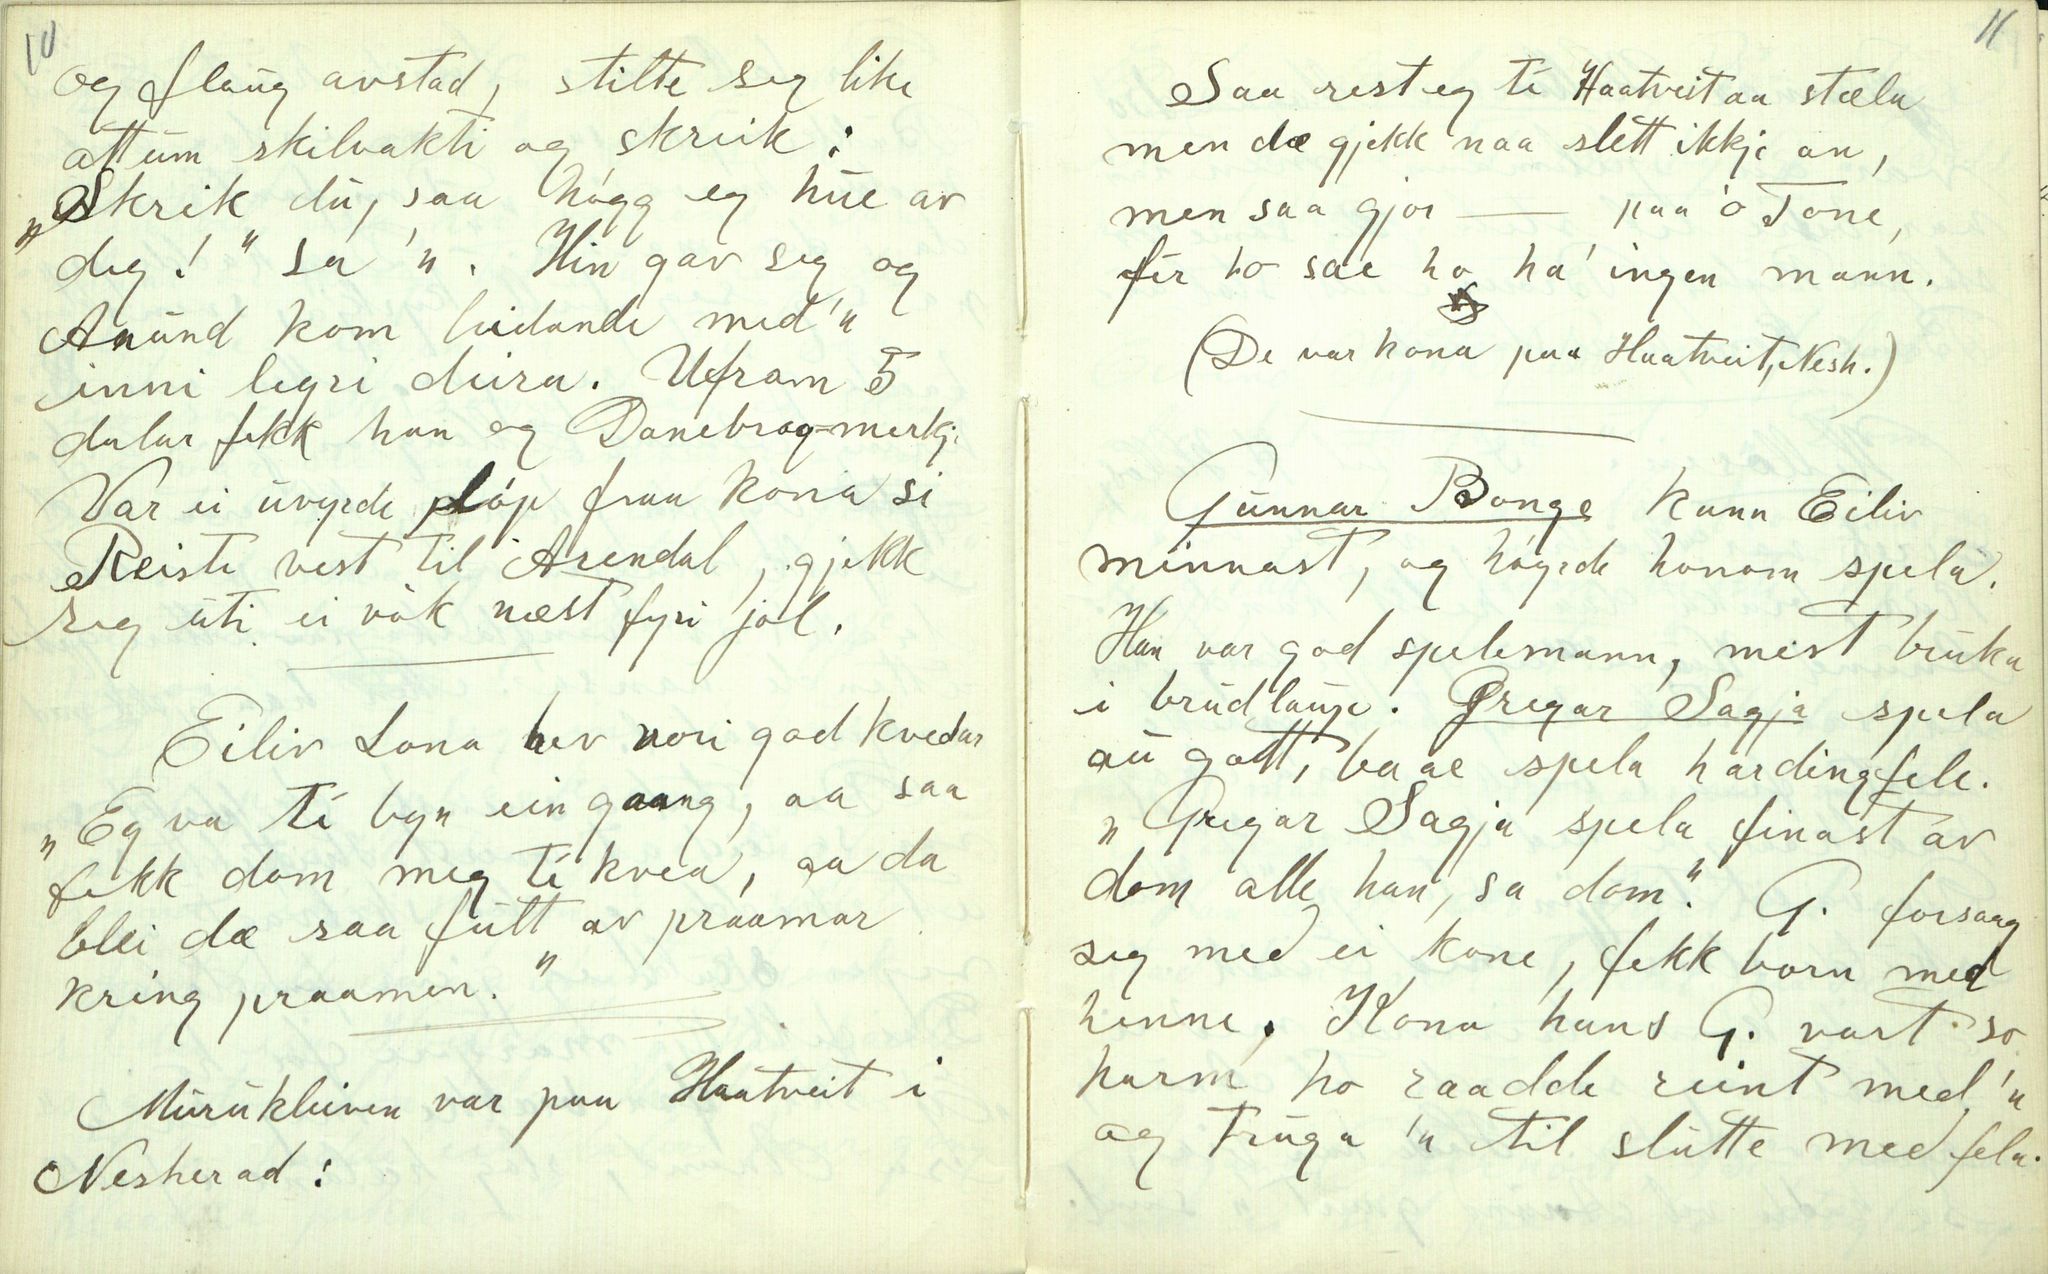 10
og flaug avstad, stilte seg like
attum skilvakti og skreik:
"Skrik du, saa högg eg hue av
deg!" sa 'n. Hin gav seg og
Anund kom leidande med 'n
inni legri deira. Ufram 5
dalar fekk han og Danebrog-merkje
Var ei uvyrde löp fraa kona si
Reiste vest til Arendal, gjekk
seg uti ei vok næst fyri jol.
Eiliv Lona hev vori god kvedar
"Eg va ti byn ein gaang, aa saa
fekk dom meg ti kvea, aa da
blei dæ saa fullt av praamar
kring praamen."
Murukleiven var paa Haatveit i
Nesherad:
11
Saa rest eg ti Haatveit aa stæla
men dæ gjekk naa slett ikkje an,
men saa gjor — paa 'o Tone,
fir ho sae ho ha' ingen mann.
(De var kona paa Haatveit, Nesh.)
Gunnar Bonge kann Eiliv
minnast, og högrde honom spela.
Han var god spelemann, mest bruka
i brudlaupe. Gregar Sagja spela
au gott, baae spela hardingfele.
"Gregar Sagja spela finast av
dom alle han, sa dom." G. forsaag
seg med ei kone, fekk born med
henne. Kona hans G. vart so
harm ho raadde reint med 'n
og truga 'n til slutte med fela.